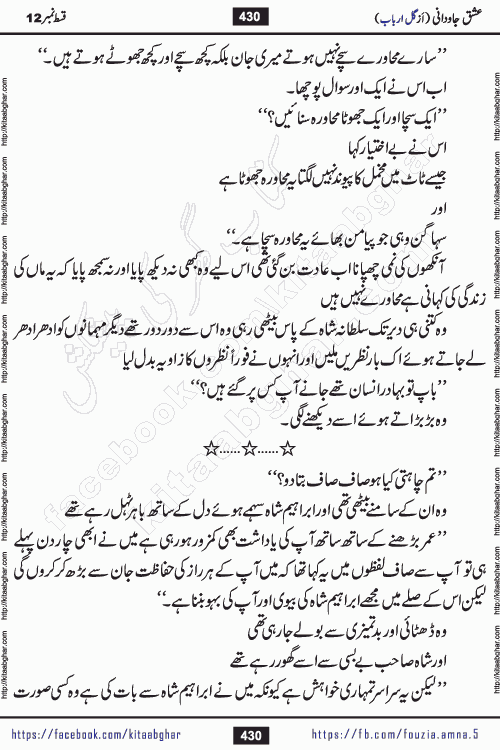 عشق جاودانی (از گل ارباب)
430
قسط نمبر 12
’’سارے محاورے سچے نہیں ہوتے میری جان بلکہ کچھ سچے اور کچھ جھوٹے ہوتے ہیں۔‘‘
اب اس نے ایک اور سوال پوچھا۔
’’ایک سچا اور ایک جھوٹا محاورہ سنائیں؟‘‘
اس نے بے اختیار کہا
جیسے ٹاٹ میں مخمل کا پیوند نہیں لگتا یہ محاورہ جھوٹا ہے
اور
سہاگن وہی جو پیا من بھائے یہ محاورہ سچا ہے۔‘‘
آنکھوں کی نمی چھپانا اب عادت بن گئی تھی اس لیے وہ کبھی نہ دیکھ پایا اور نہ سمجھ پایا کہ یہ ماں کی
زندگی کی کہانی ہے محاورے نہیں ہیں
وہ کتنی ہی دیر تک سلطانہ شاہ کے پاس بیٹھی رہی وہ اس سے دور دور تھے دیگر مہمانوں کو ادھر ادھر
لے جاتے ہوئے اک بار نظریں ملیں اور انہوں نے فوراً نظروں کا زاویہ بدل لیا
’’باپ تو بہادر انسان تھے جانے آپ کس پر گئے ہیں؟‘‘
وہ بڑبڑاتے ہوئے اسے دیکھنے لگی۔
☆......☆......☆
’’تم چاہتی کیا ہو صاف صاف بتا دو؟‘‘
وہ ان کے سامنے بیٹھی تھی اور ابراہیم شاہ سہمے ہوئے دل کے ساتھ باہر ٹہل رہے تھے
’’عمر بڑھنے کے ساتھ ساتھ آپ کی یاداشت بھی کمزور ہو رہی ہے میں نے ابھی چار دن پہلے
ہی تو آپ سے صاف لفظوں میں یہ کہا تھا کہ میں آپ کے ہر راز کی حفاظت جان سے بڑھ کر کروں گی
لیکن اس کے صلے میں مجھے ابراہیم شاہ کی بیوی اور آپ کی بہو بننا ہے۔‘‘
وہ ڈھٹائی اور بدتمیزی سے بولے جا رہی تھی
اور شاہ صاحب بے بسی سے اسے گھور رہے تھے
’’لیکن یہ سراسر تمہاری خواہش ہے کیونکہ میں نے ابراہیم شاہ سے بات کی ہے وہ کسی صورت
https://facebook.com/kitaabghar
430
https://fb.com/fouzia.amna.5
http://kitaabghar.com
کتاب گھر کی پیشکش
facebook.com/kitaabghar
kitaabghar.com